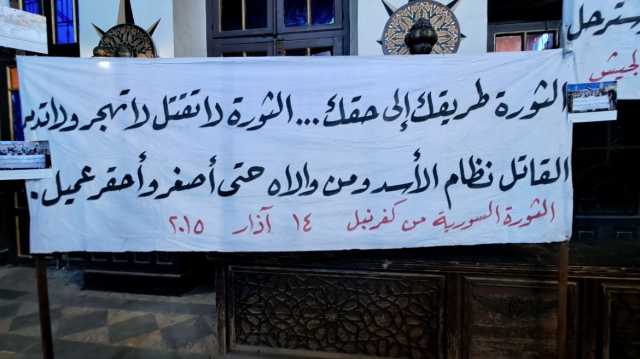 الثورة طريقك إلى حقك... الثورة لا تقتل لا تهجر ولا تدمر
القاتل نظام الأسد ومن والاه حتى أصغر وأحقر عميل.
الثورة السورية من كفرنبل ١٤ آذار ٢٠١٥
سترحل
الجيش